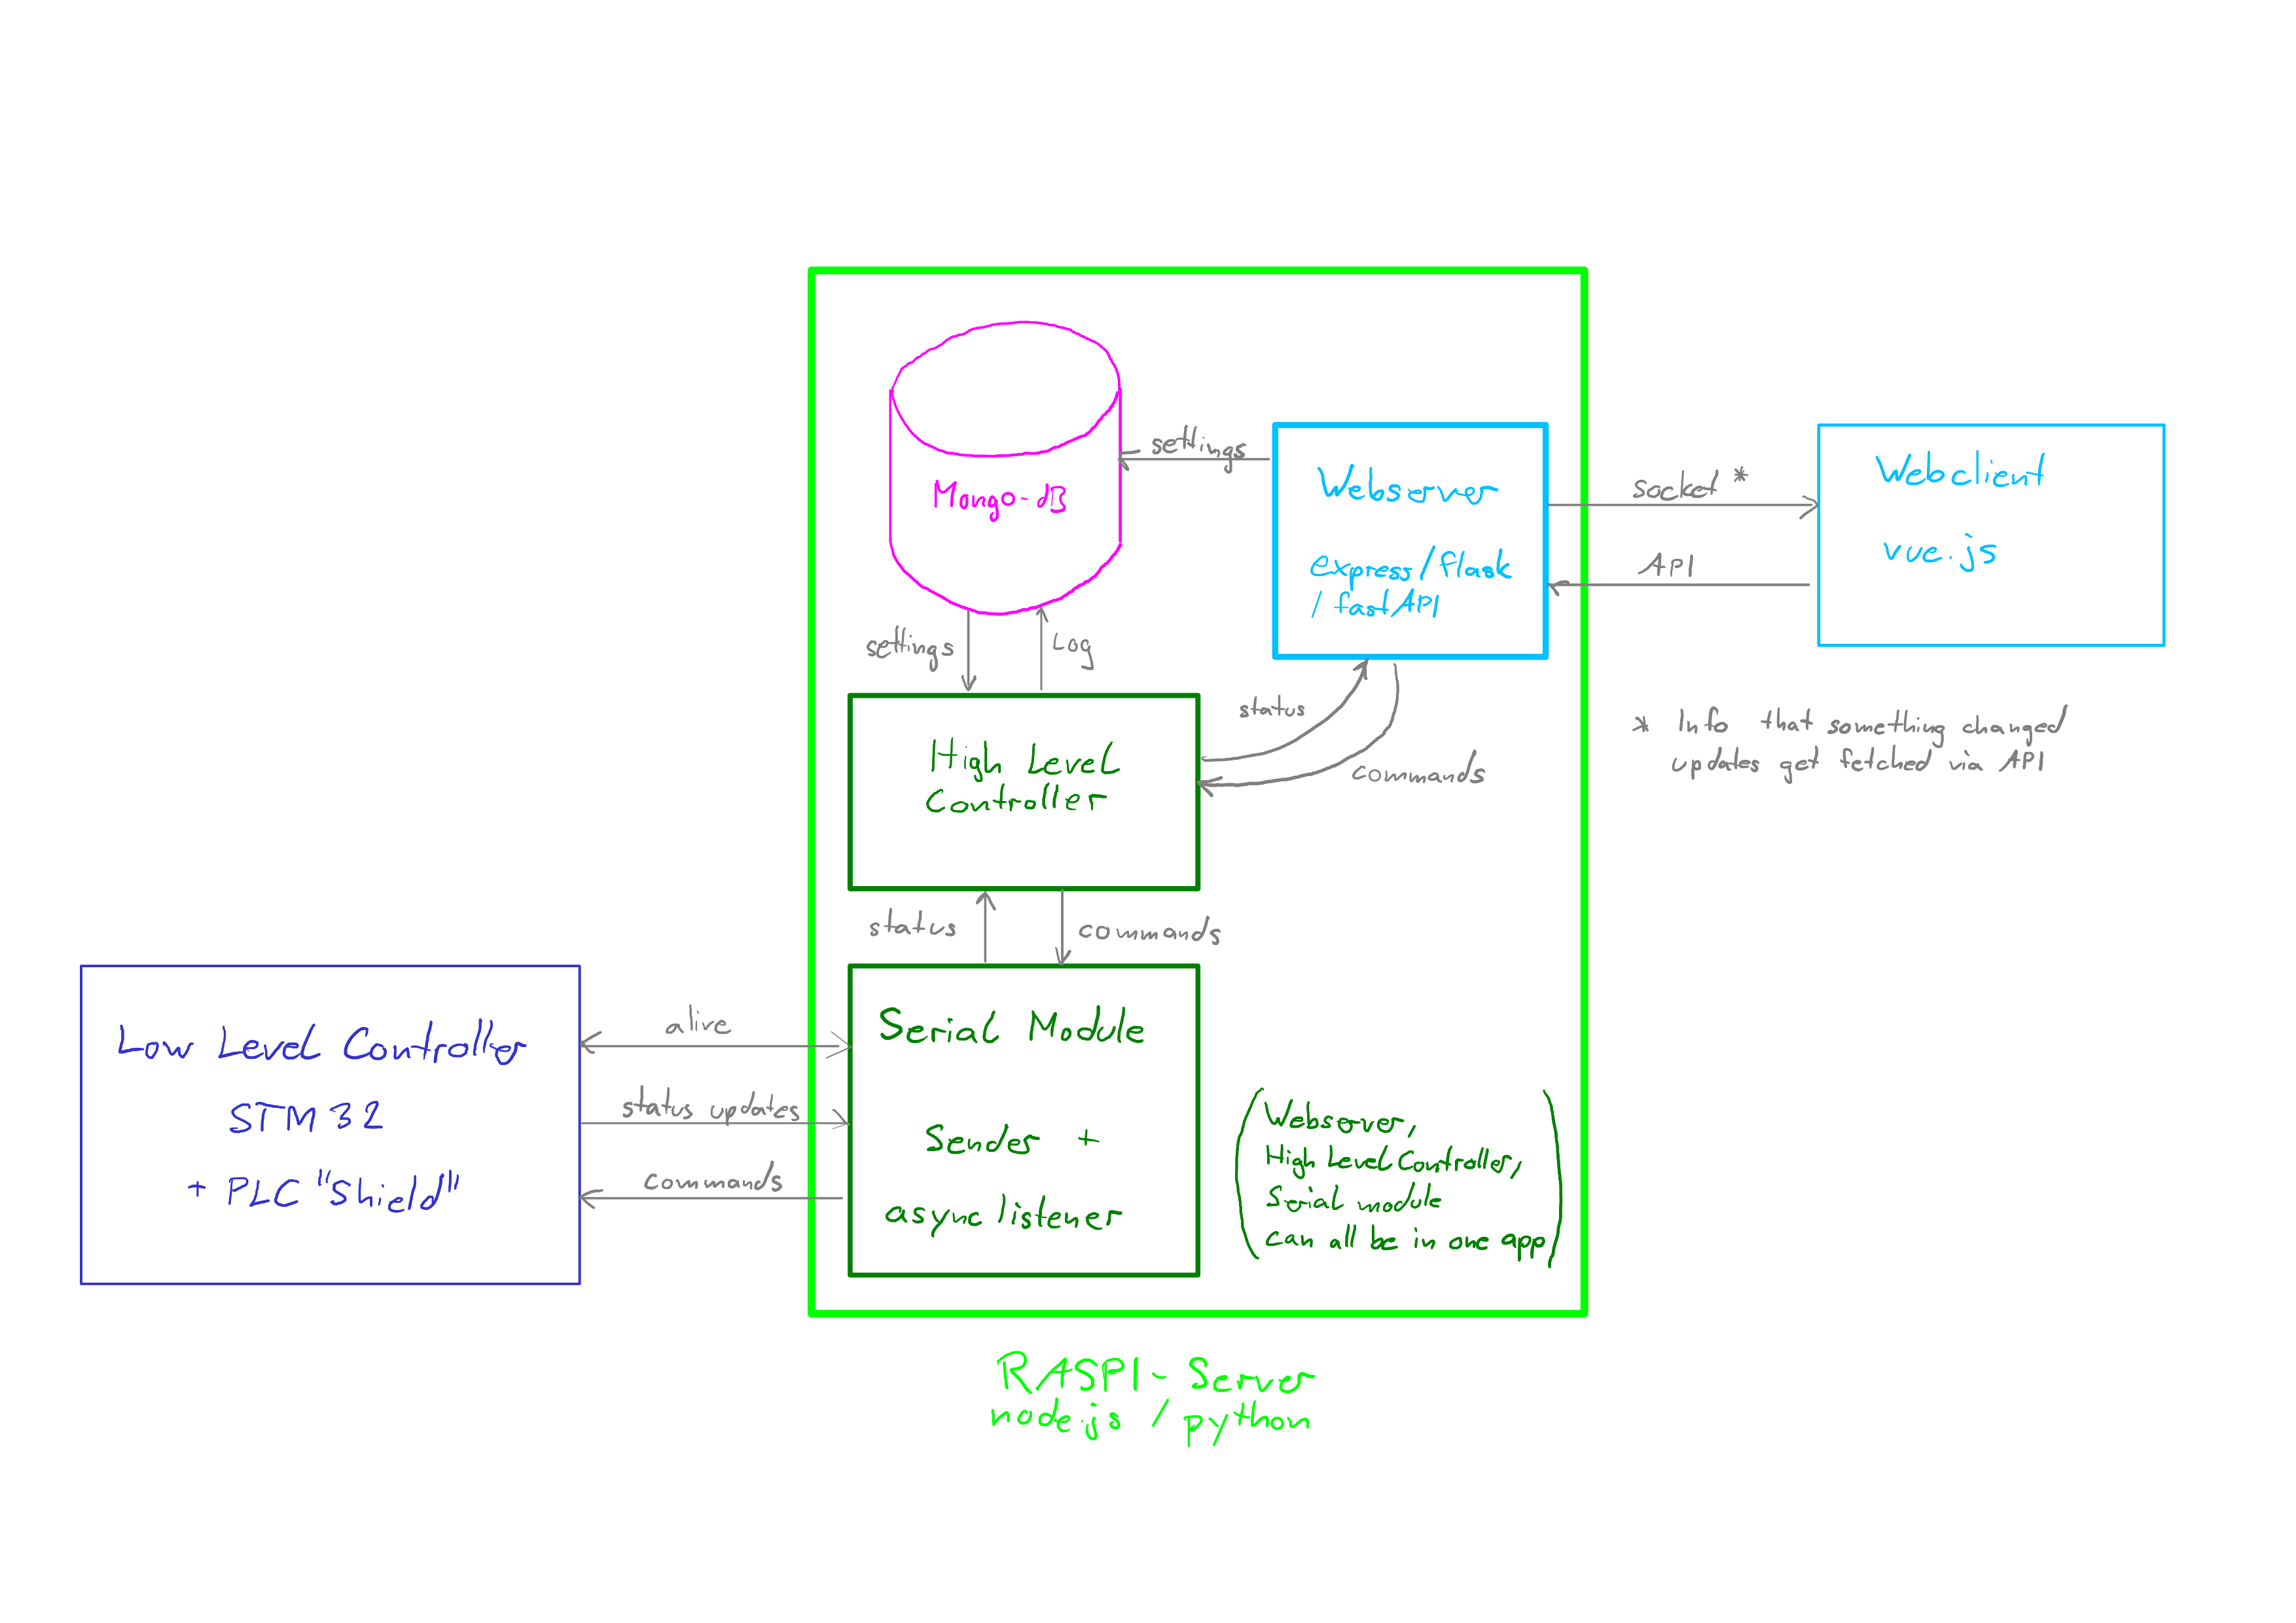 Mongo-dB
settings
Webserver
express/flask
/ fastAPI
socket *
API
Webclient
vue.js
settings
Log
status
commands
* Info that something changed
updates get fetched via API
High Level
Controller
status
commands
Low Level Controller
STM32
+ PLC "Shield"
alive
status updates
commands
Serial Module
Sender +
async listener
(Webserver,
High Level Controller,
Serial module
can all be in one app)
RASPI-Server
node.js / python